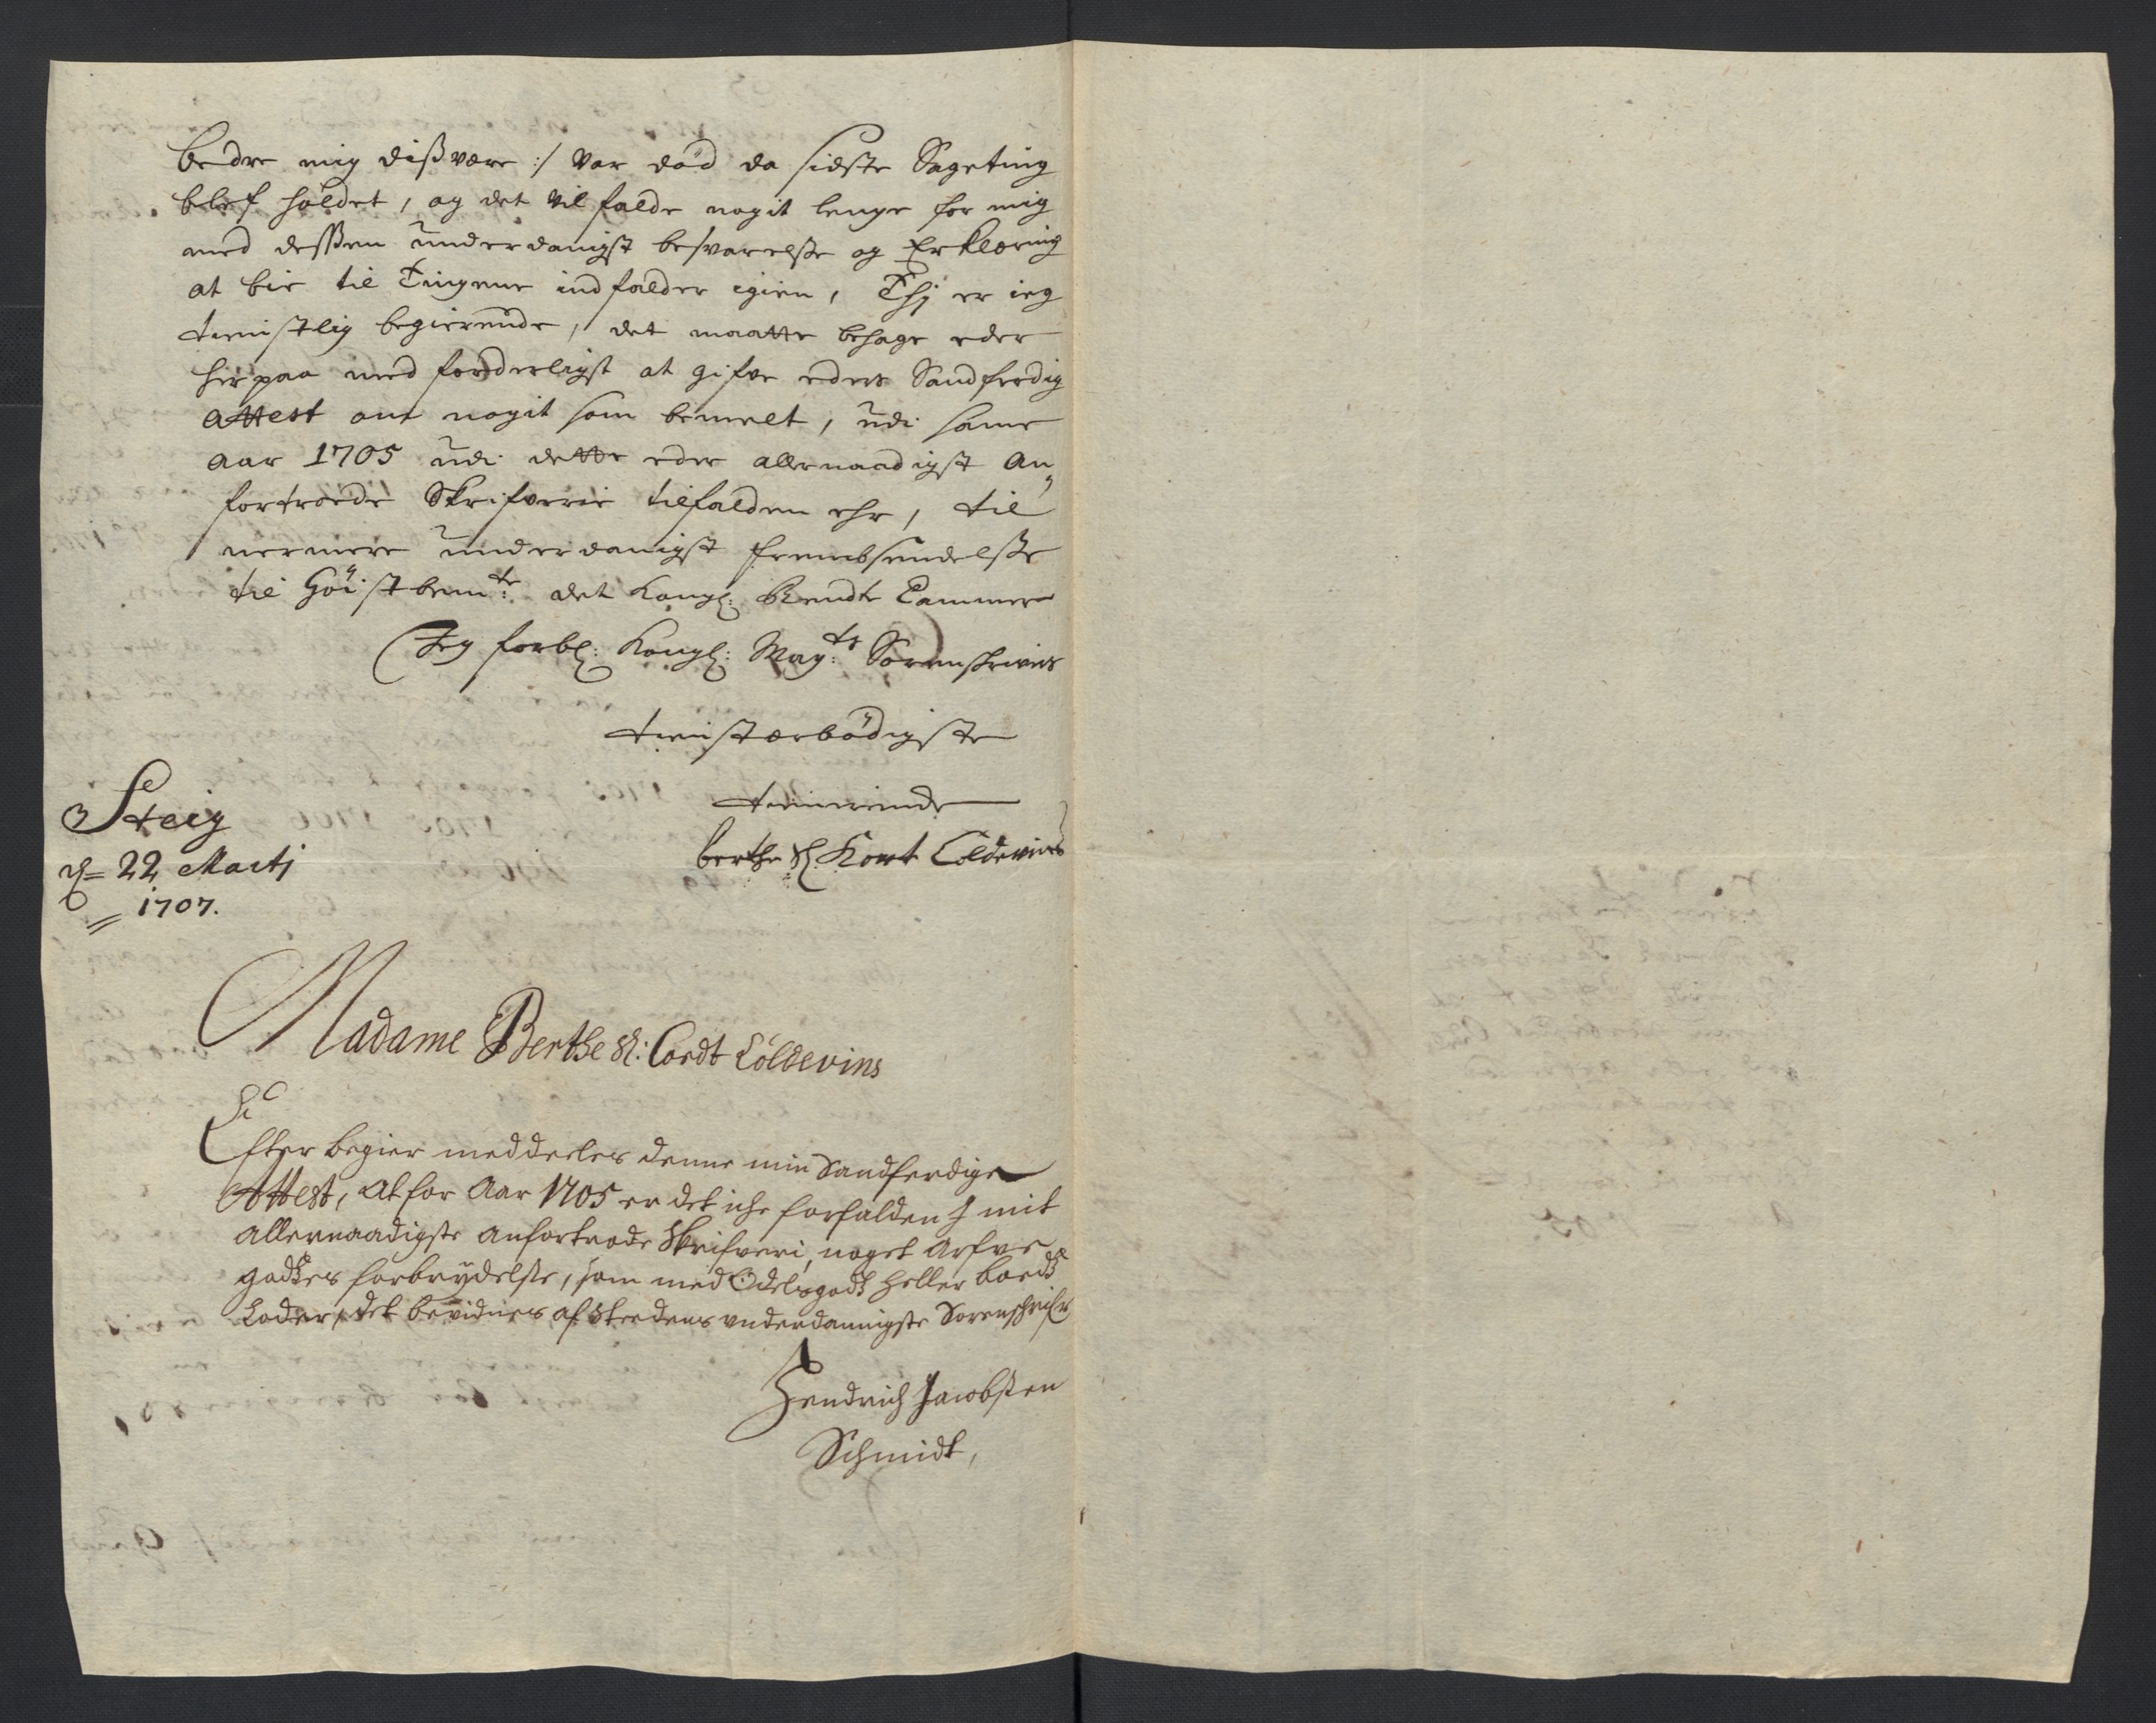 bedre mig dissverre :/ var död da sidste Sageting
blef holdet, og det vil falde nogit lenge for mig
med dessen underdanigst besvarelsse og Erklering
at bie til Tingene indfalder igien, Thj er ieg
tienstlig begierende, det maatte behage eder
her paa med forderligst at gifve eders Sandferdig
Attest om nogit som bemelt, udi same
Aar 1705 udi dette eder allernaadigst An„
fortroede Skrifverie tilfalden ehr, til
nermere underdanigst frembsendelsse
til Höistbemte: det Kongl: Rendte Cammer
Jeg forbl: Kongl: May:ts Sorenskrivers
tienstærbödigste
tienerinde
berthe Sl. Kort Coldevins
Steig
d= 22 Martj
1707.
Madame Berthe Sl: Cordt Coldevins
Efter begier meddeeles denne min Sandferdige
Attest, At for Aar 1705 er det iche forfalden J mit
allernaadigste anfortrode Skrifveri, noget Arfve
godtzes forbrydelsse, som med Odelsgodtz heller boedtz
Loder, det bevidnes af Stedens underdannigste Sorenschrifr
Hendrich Jacobssen
Schmidt,